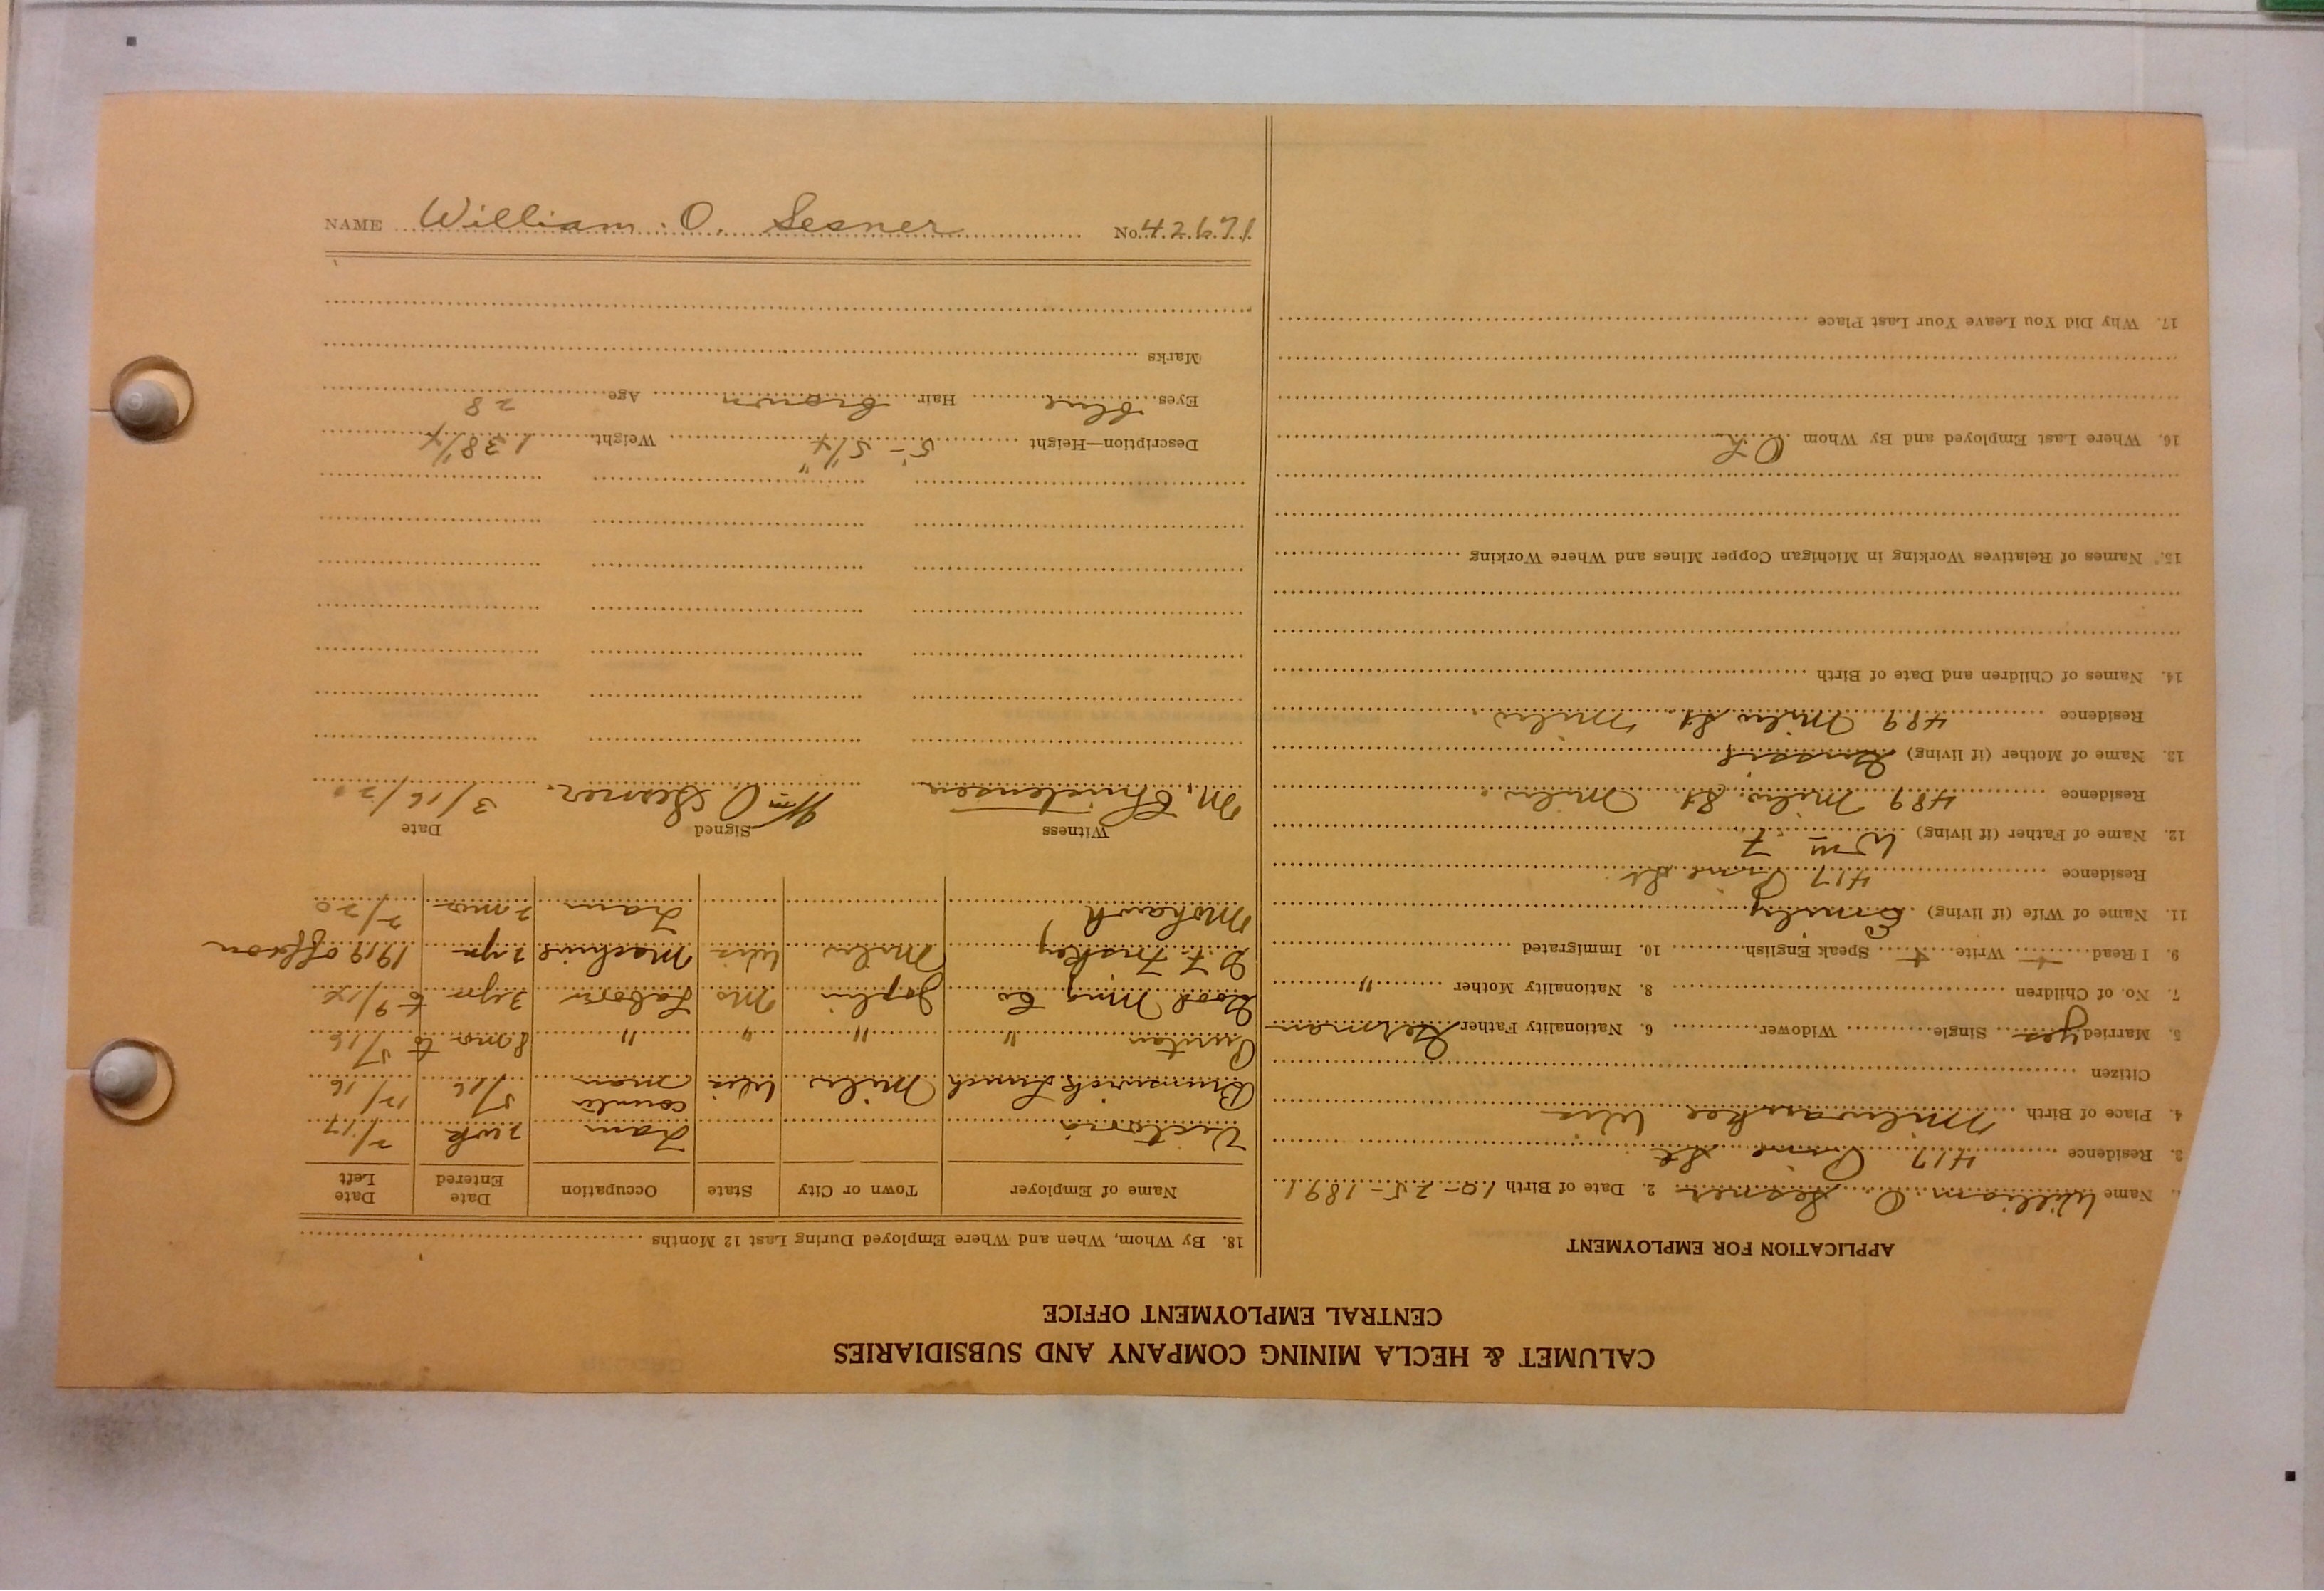 CALUMET & HECLA MINING COMPANY AND SUBSIDIARIES
CENTRAL EMPLOYMENT OFFICE
APPLICATION FOR EMPLOYMENT
1. Name William O. Sesner 2. Date of Birth 10-25-1891
3. Residence 417 Pine St
4. Place of Birth Milwaukee Wis
Citizen
5. Married yes Single Widower 6. Nationality Father German
7. No. of Children 8. Nationality Mother "
9. I Read Write Speak English 10. Immigrated
11. Name of Wife (if living) Emily
Residence 417 Pine St
12. Name of Father (if living) Wm F
Residence 489 Milw. St. Milw.
13. Name of Mother (if living)
Residence 489 Milw St. Milw.
14. Names of Children and Date of Birth
15. Names of Relatives Working in Michigan Copper Mines and Where Working
16. Where Last Employed and By Whom
17. Why Did You Leave Your Last Place
18. By Whom, When and Where Employed During Last 12 Months
Name of Employer Town or City State Occupation Date Entered Date Left
Victoria Tram 2 wk 2/17
Brunswick Lunch Milw Wis counter man 5/16 12/16
Puritan " " " " 8 mo to 5/16
Good Ming Co Joplin Mo Labor 3 yr to 9/14
Milw Wis Machine 2 yr 1919
Mohawk Tram 2 mo 2/20
Witness Signed Date
M. Christensen Wm O Sesner. 3/16/20
Description—Height 5'-5 1/4" Weight 138 1/4
Eyes blue Hair brown Age 28
Marks
NAME William O. Sesner No. 42671